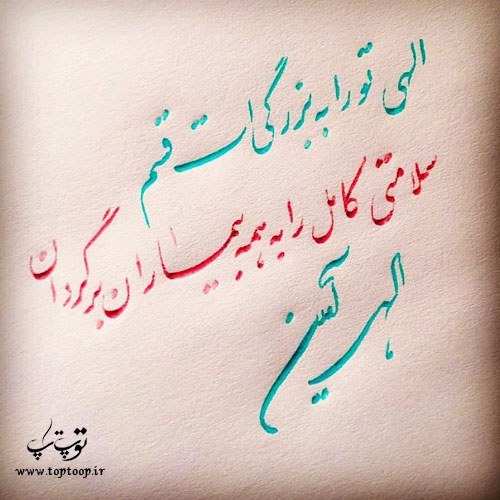 الهی تو را به بزرگی ات قسم
سلامتی کامل را به همه بیماران برگردان
الهی آمین
توپ تاپ
www.toptoop.ir